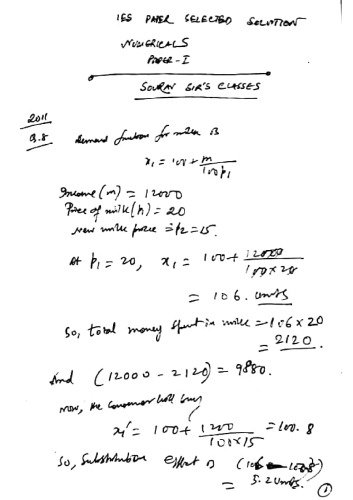 IES PAPER SELECTED SOLUTION
NUMERICALS
PAPER - I
SOURAV SIR'S CLASSES
2011
Q.8 demand function for milk is
x₁ = 100 + m/100p₁
Income (m) = 12000
Price of milk (p₁) = 20
New milk price = p₂ = 15.
At p₁ = 20, x₁ = 100 + 12000/100×20
= 106. units
So, total money spent in milk = 106 × 20
= 2120.
And (12000 - 2120) = 9880.
Now, the consumer will buy
x₁' = 100 + 1200/100×15 = 100.8
So, substitution effect is (106 - 100.8)
= 5.2 units.
1